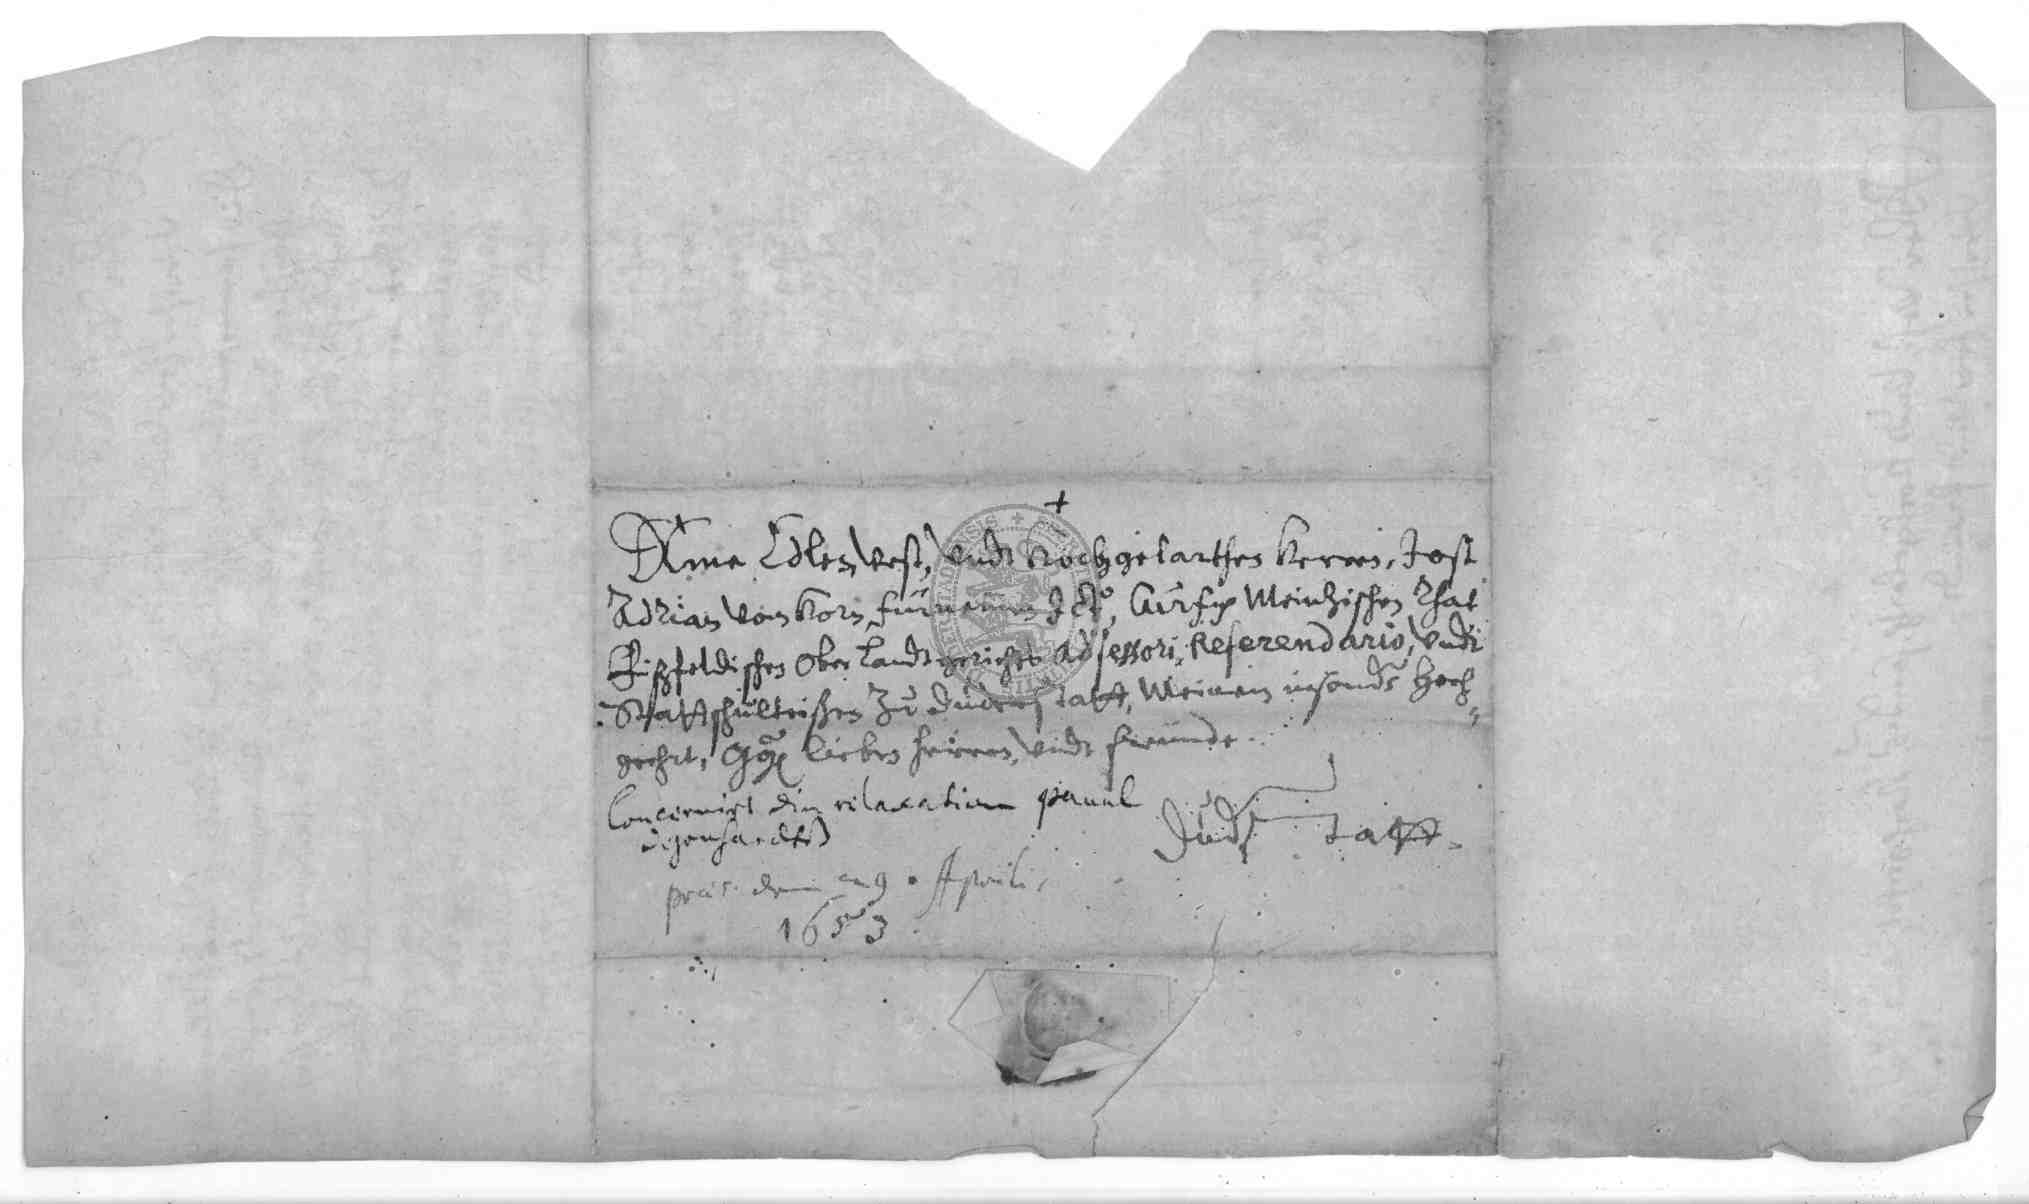 +
Deme Edlen, Vest, undt Hochgelarthen Herren, Jost
Adrian von Horn, fürnehmen JCto, Churfr. Meintzischen Rhat
Eißfeldischen Ober Landtgerichts Adsessori, Referendario, undt
Stattschulteißen zu Duderstatt, Meinem insonders Hoch-
geehrt, lieben Herren, undt freunde.
Concernirt die relaxation paull
degenhardts
Duder statt.
præs. den 29. Aprilis
1653